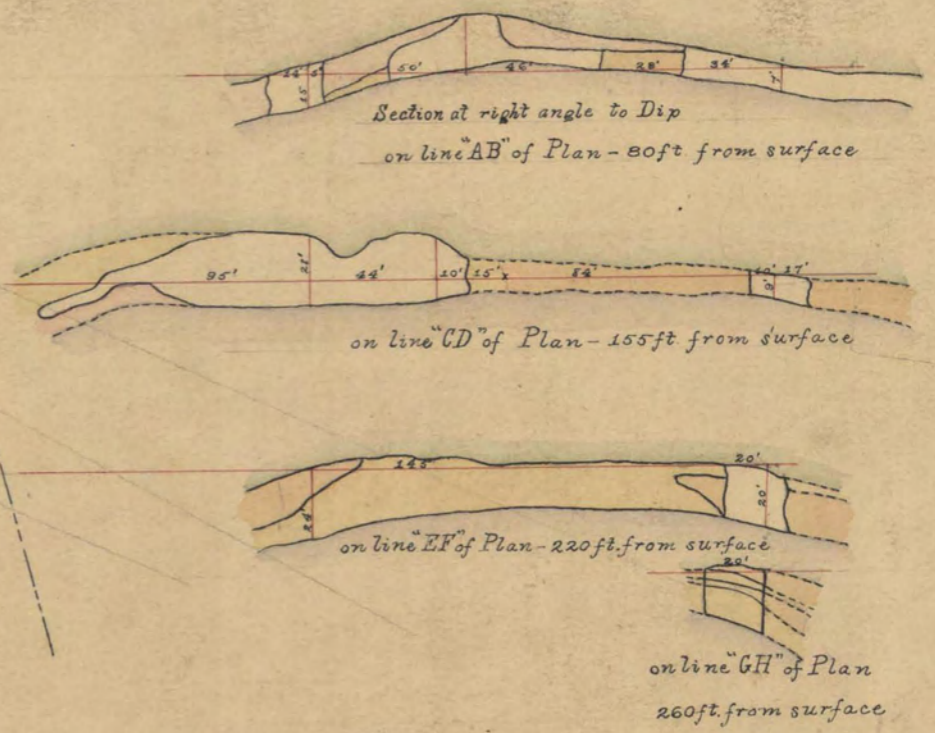 14' 5' 50' 46' 28' 34'
15' 7'
Section at right angle to Dip
on line "AB" of Plan - 80ft. from surface
95' 21' 44' 10' 15' x 84' 10' 17'
9'
on line "CD" of Plan - 155ft. from surface
145' 20'
24' 20'
on line "EF" of Plan - 220ft. from surface
20'
on line "GH" of Plan
260ft. from surface